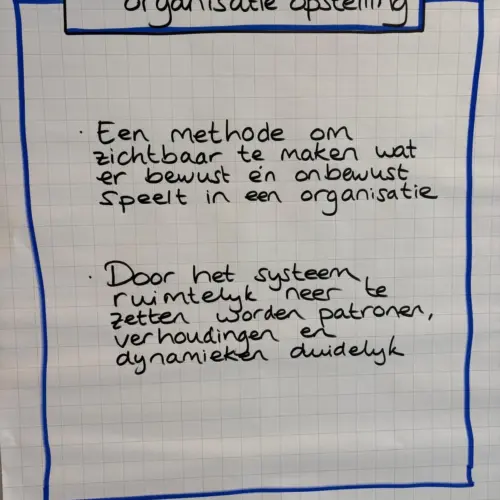 organisatie opstelling
· Een methode om
zichtbaar te maken wat
er bewust én onbewust
speelt in een organisatie
· Door het systeem
ruimtelyk neer te
zetten worden patronen,
verhoudingen en
dynamieken duidelyk